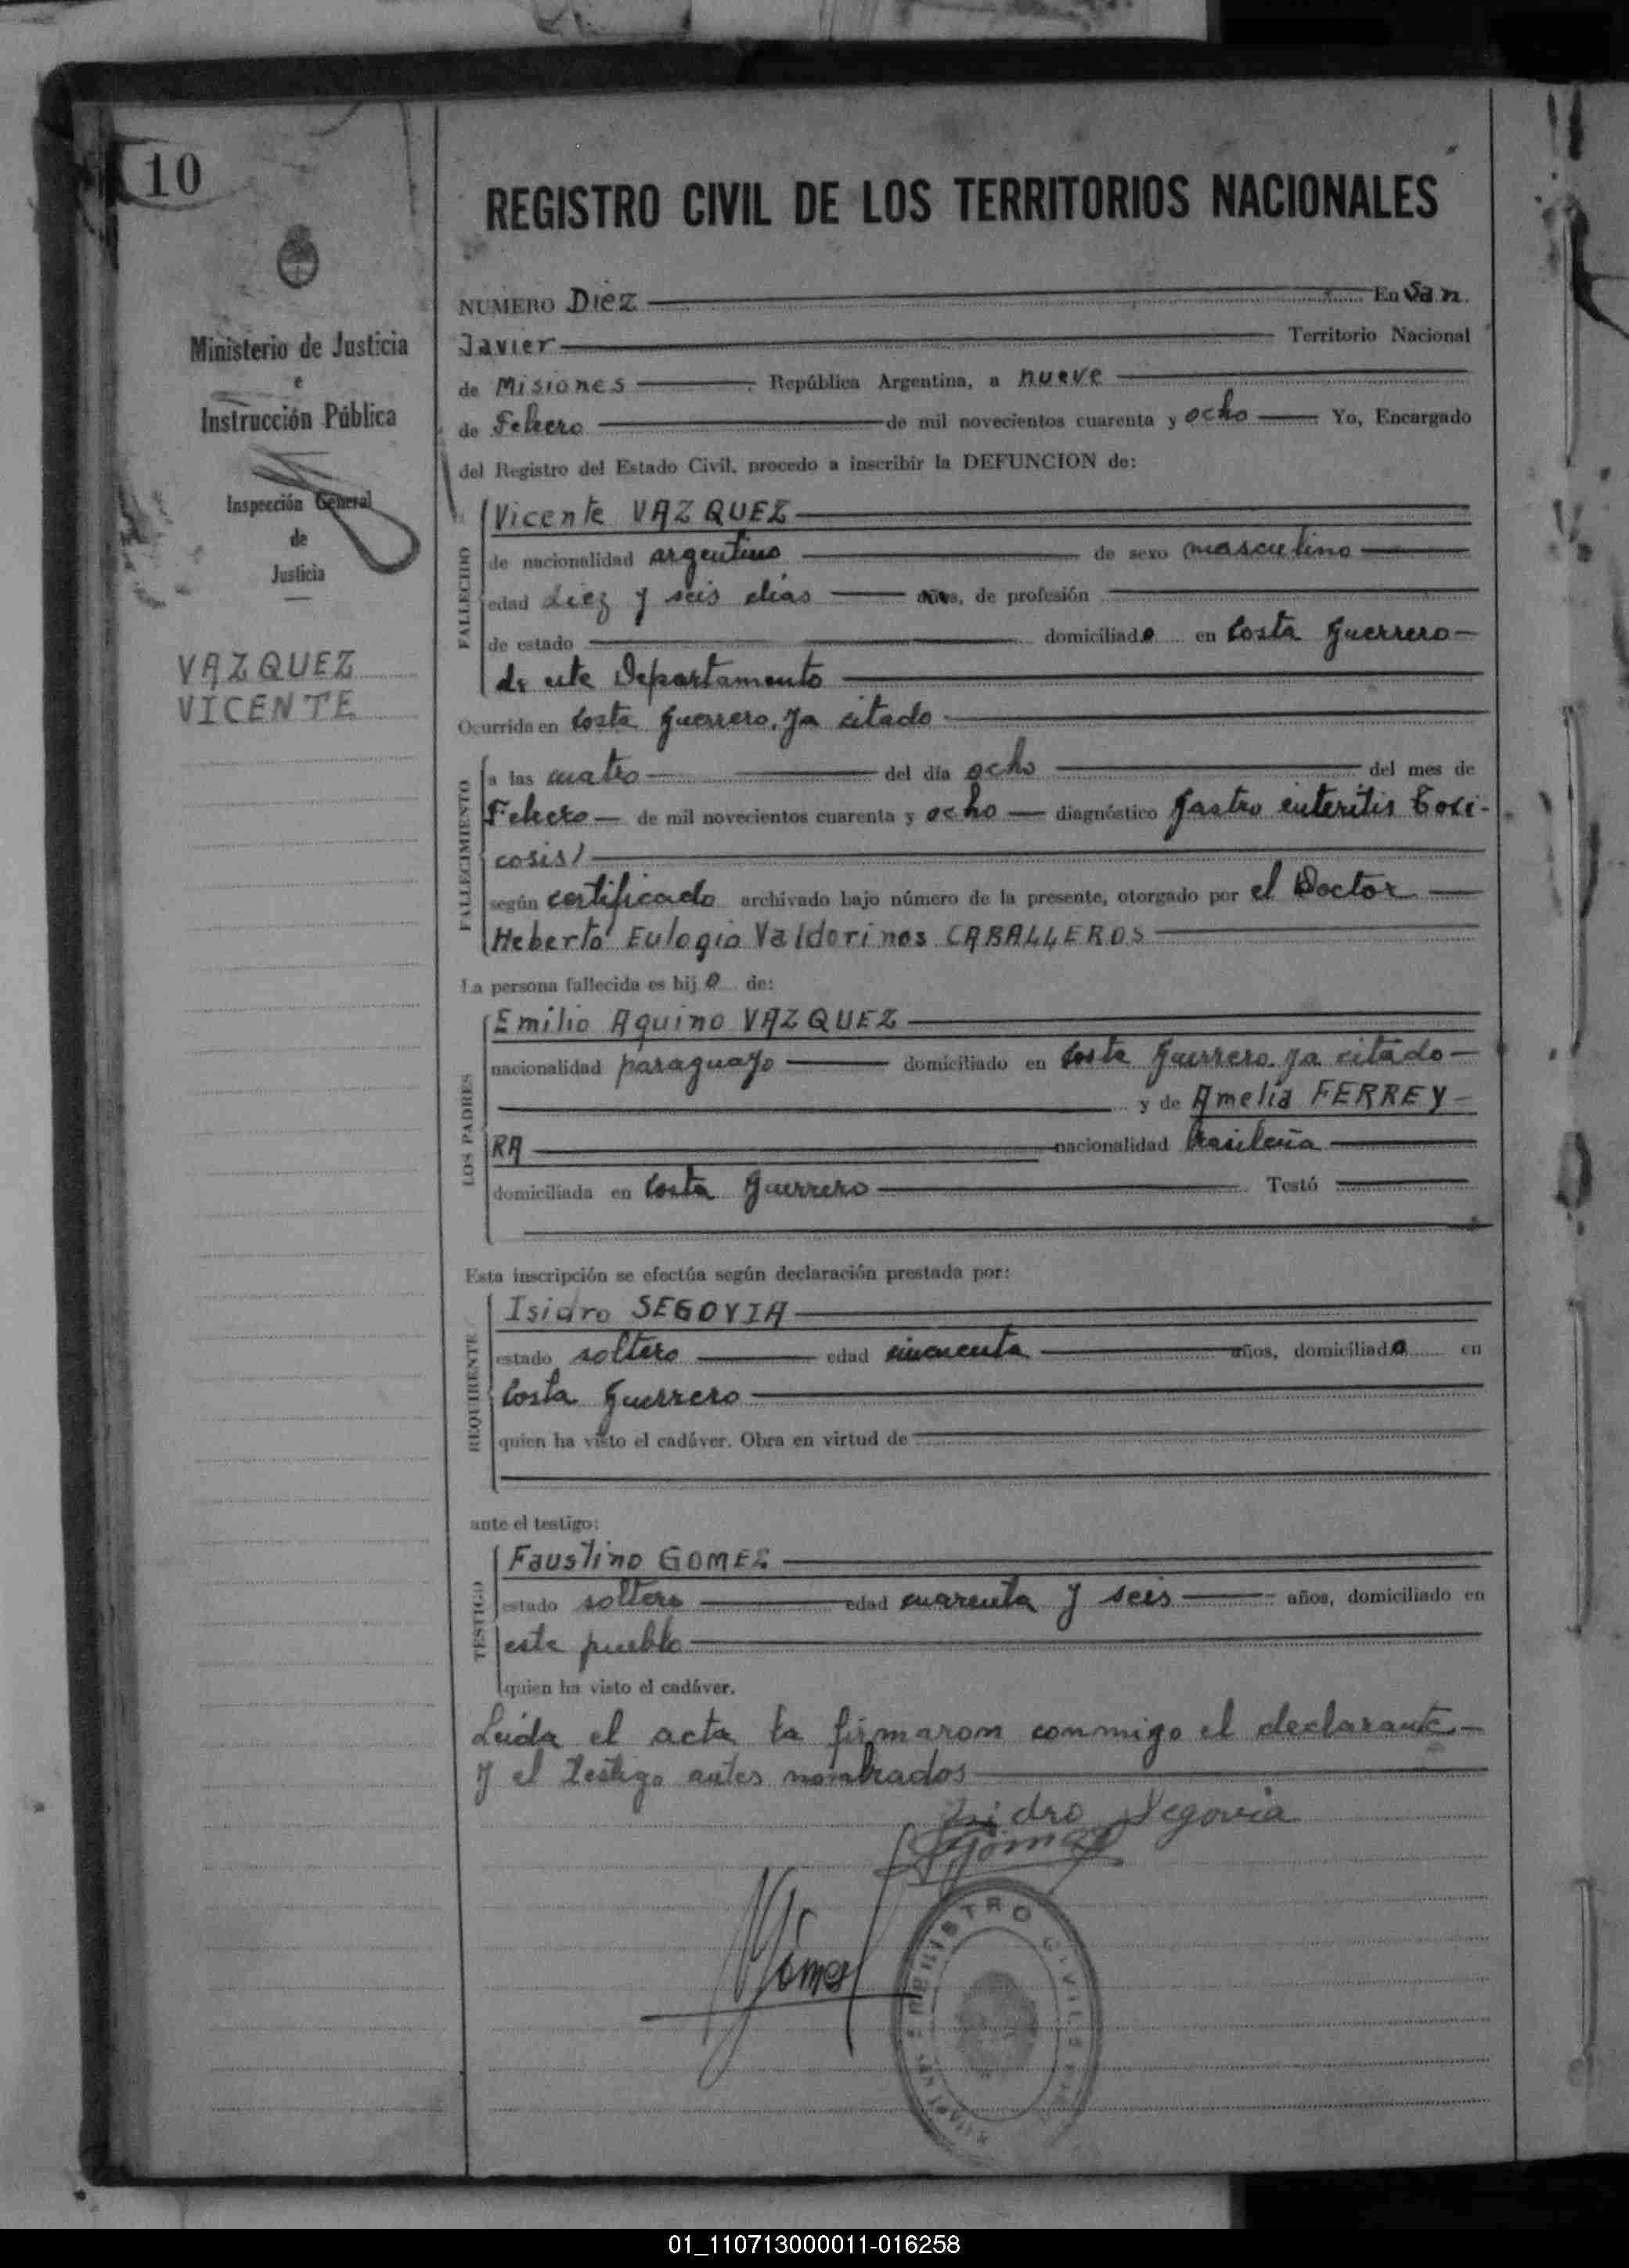 10
Ministerio de Justicia
e
Instrucción Pública
Inspección General
de
Justicia
VAZQUEZ
VICENTE
REGISTRO CIVIL DE LOS TERRITORIOS NACIONALES
NUMERO Diez En San
Javier Territorio Nacional
de Misiones República Argentina, a nueve
de Febrero de mil novecientos cuarenta y ocho Yo, Encargado
del Registro del Estado Civil, procedo a inscribir la DEFUNCION de:
FALLECIDO
Vicente VAZQUEZ
de nacionalidad argentino de sexo masculino
edad diez y seis dias años, de profesión
de estado domiciliado en Costa Guerrero
de este Departamento
Ocurrida en Costa Guerrero, ya citado
FALLECIMIENTO
a las cuatro del día ocho del mes de
Febrero de mil novecientos cuarenta y ocho diagnóstico gastro enteritis Toxi-
cosis)
según certificado archivado bajo número de la presente, otorgado por el Doctor
Heberto Eulogio Valdorinos CABALLEROS
La persona fallecida es hijo de:
LOS PADRES
Emilio Aquino VAZQUEZ
nacionalidad paraguayo domiciliado en Costa Guerrero ya citado
y de Amelia FERREY-
RA nacionalidad brasileña
domiciliada en Costa Guerrero Testó
Esta inscripción se efectúa según declaración prestada por:
REQUIRENTE
Isidro SEGOVIA
estado soltero edad cincuenta años, domiciliado en
Costa Guerrero
quien ha visto el cadáver. Obra en virtud de
ante el testigo:
TESTIGO
Faustino GOMEZ
estado soltero edad cuarenta y seis años, domiciliado en
este pueblo
quien ha visto el cadáver.
Leida el acta la firmaron conmigo el declarante
y el testigo antes nombrados
Isidro Segovia
Gómez
Gómez
REGISTRO CIVIL
01_110713000011-016258